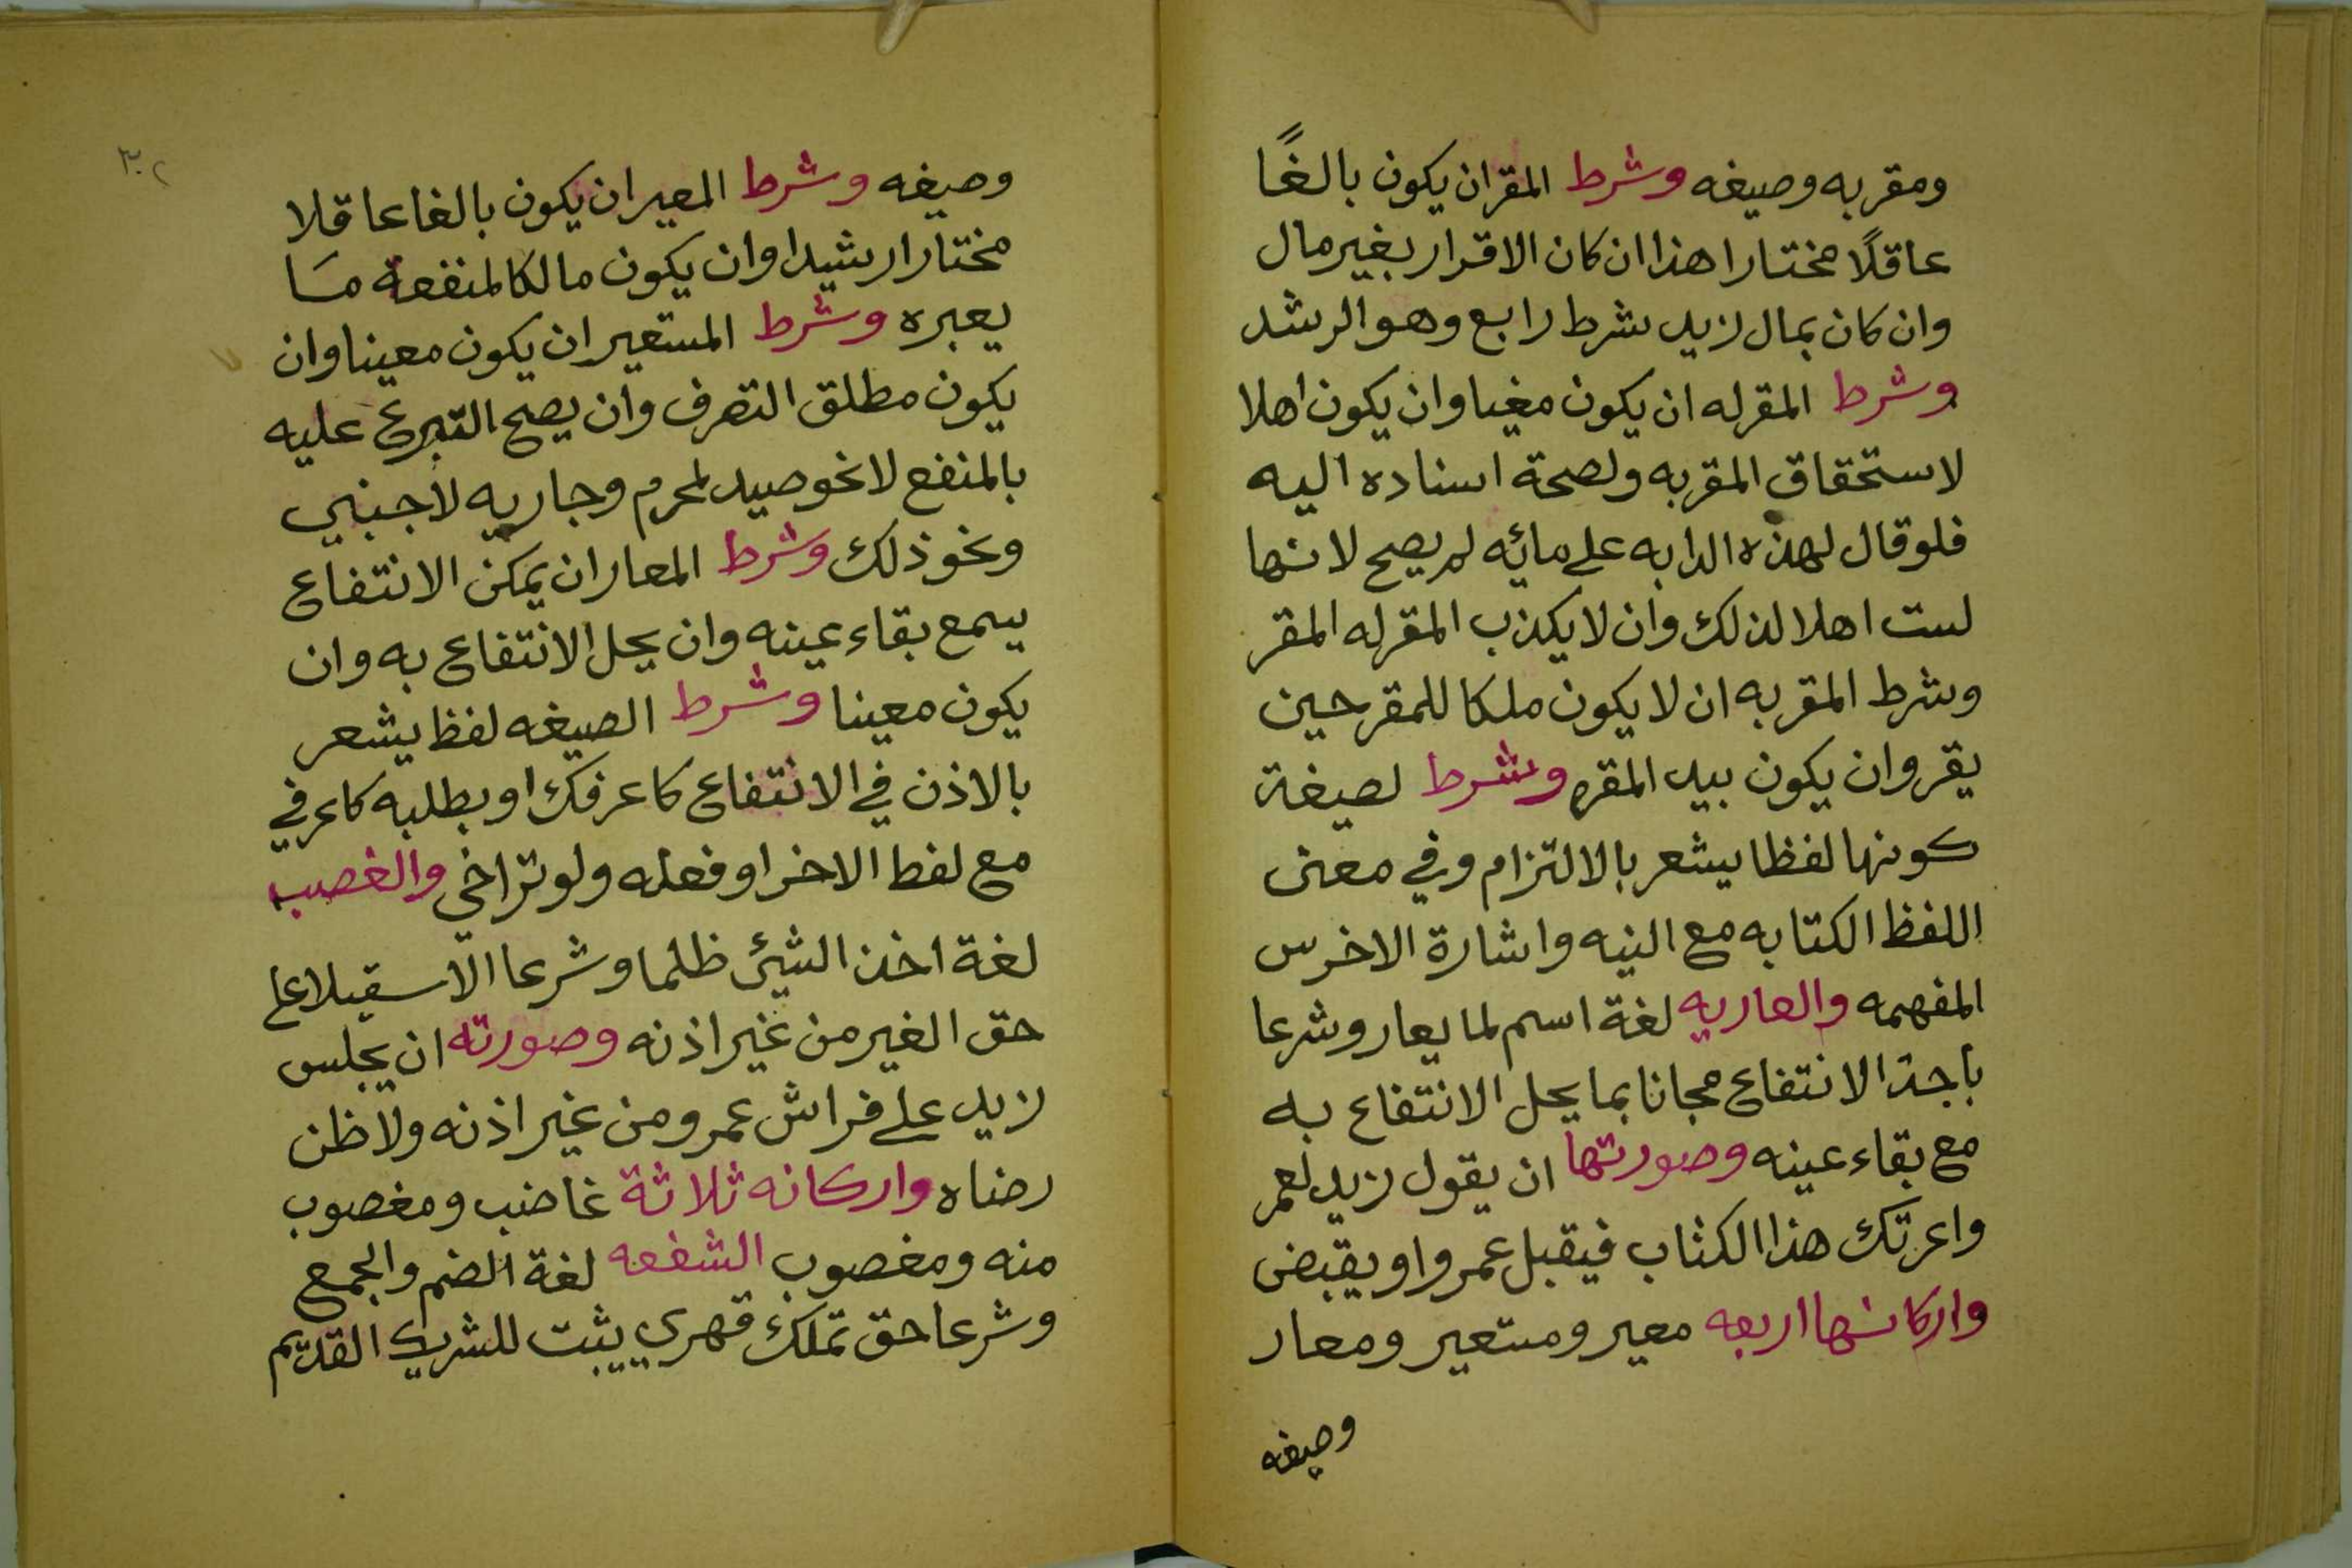 ومقر به وصيغه وشرط المقران يكون بالغًا
عاقلًا مختارا هذا ان كان الاقرار بغير مال
وان كان بمال زيد شرط رابع وهو الرشد
وشرط المقرله ان يكون مغيبا وان يكون اهلا
لاستحقاق المقربه ولصحة اسناده اليه
فلو قال لهذه الدابه علي مائه لم يصح لانها
لست اهلا لذلك وان لا يكذب المقرله المقر
وشرط المقربه ان لا يكون ملكا للمقر حين
يقر وان يكون بيد المقره وشرط لصيغة
كونها لفظا يشعر بالالتزام وفي معنى
اللفظ الكتابه مع النيه واشارة الاخرس
المفهمه والعاريه لغة اسم لما يعار وشرعا
باحة الانتفاع مجانا بما يحل الانتفاع به
مع بقاء عينه وصورتها ان يقول زيد لعمر
واعرتك هذا الكتاب فيقبل عمرو او يقبض
واركانها اربعه معير ومستعير ومعار
وصيغه
٣٠٢
وصيغه وشرط المعير ان يكون بالغا عاقلا
مختارا رشيدا وان يكون مالكا لمنفعة مسا
يعيره وشرط المستعير ان يكون معينا وان
يكون مطلق التصرف وان يصح التبرع عليه
بالمنفع لا نحو صيد لمحرم وجاريه لاجنبي
ونحو ذلك وشرط المعار ان يمكن الانتفاع
بيمع بقاء عينه وان يحل الانتفاع به وان
يكون معينا وشرط الصيغه لفظ يشعر
بالاذن في الانتفاع كاعرفك او بطلبه كاعرفي
مع لفط الاخر او فعله ولو تراخي والغصب
لغة اخذ الشئ ظلما وشرعا الاسقيلا علے
حق الغير من غير اذنه وصورته ان يجلس
زيد علے فراش عمرو من غير اذنه ولا ظن
رضاه واركانه ثلاثة غاضب ومغصوب
منه ومغصوب الشفعه لغة الضم والجمع
وشرعا حق تملك قهري يثبت للشريك القديم